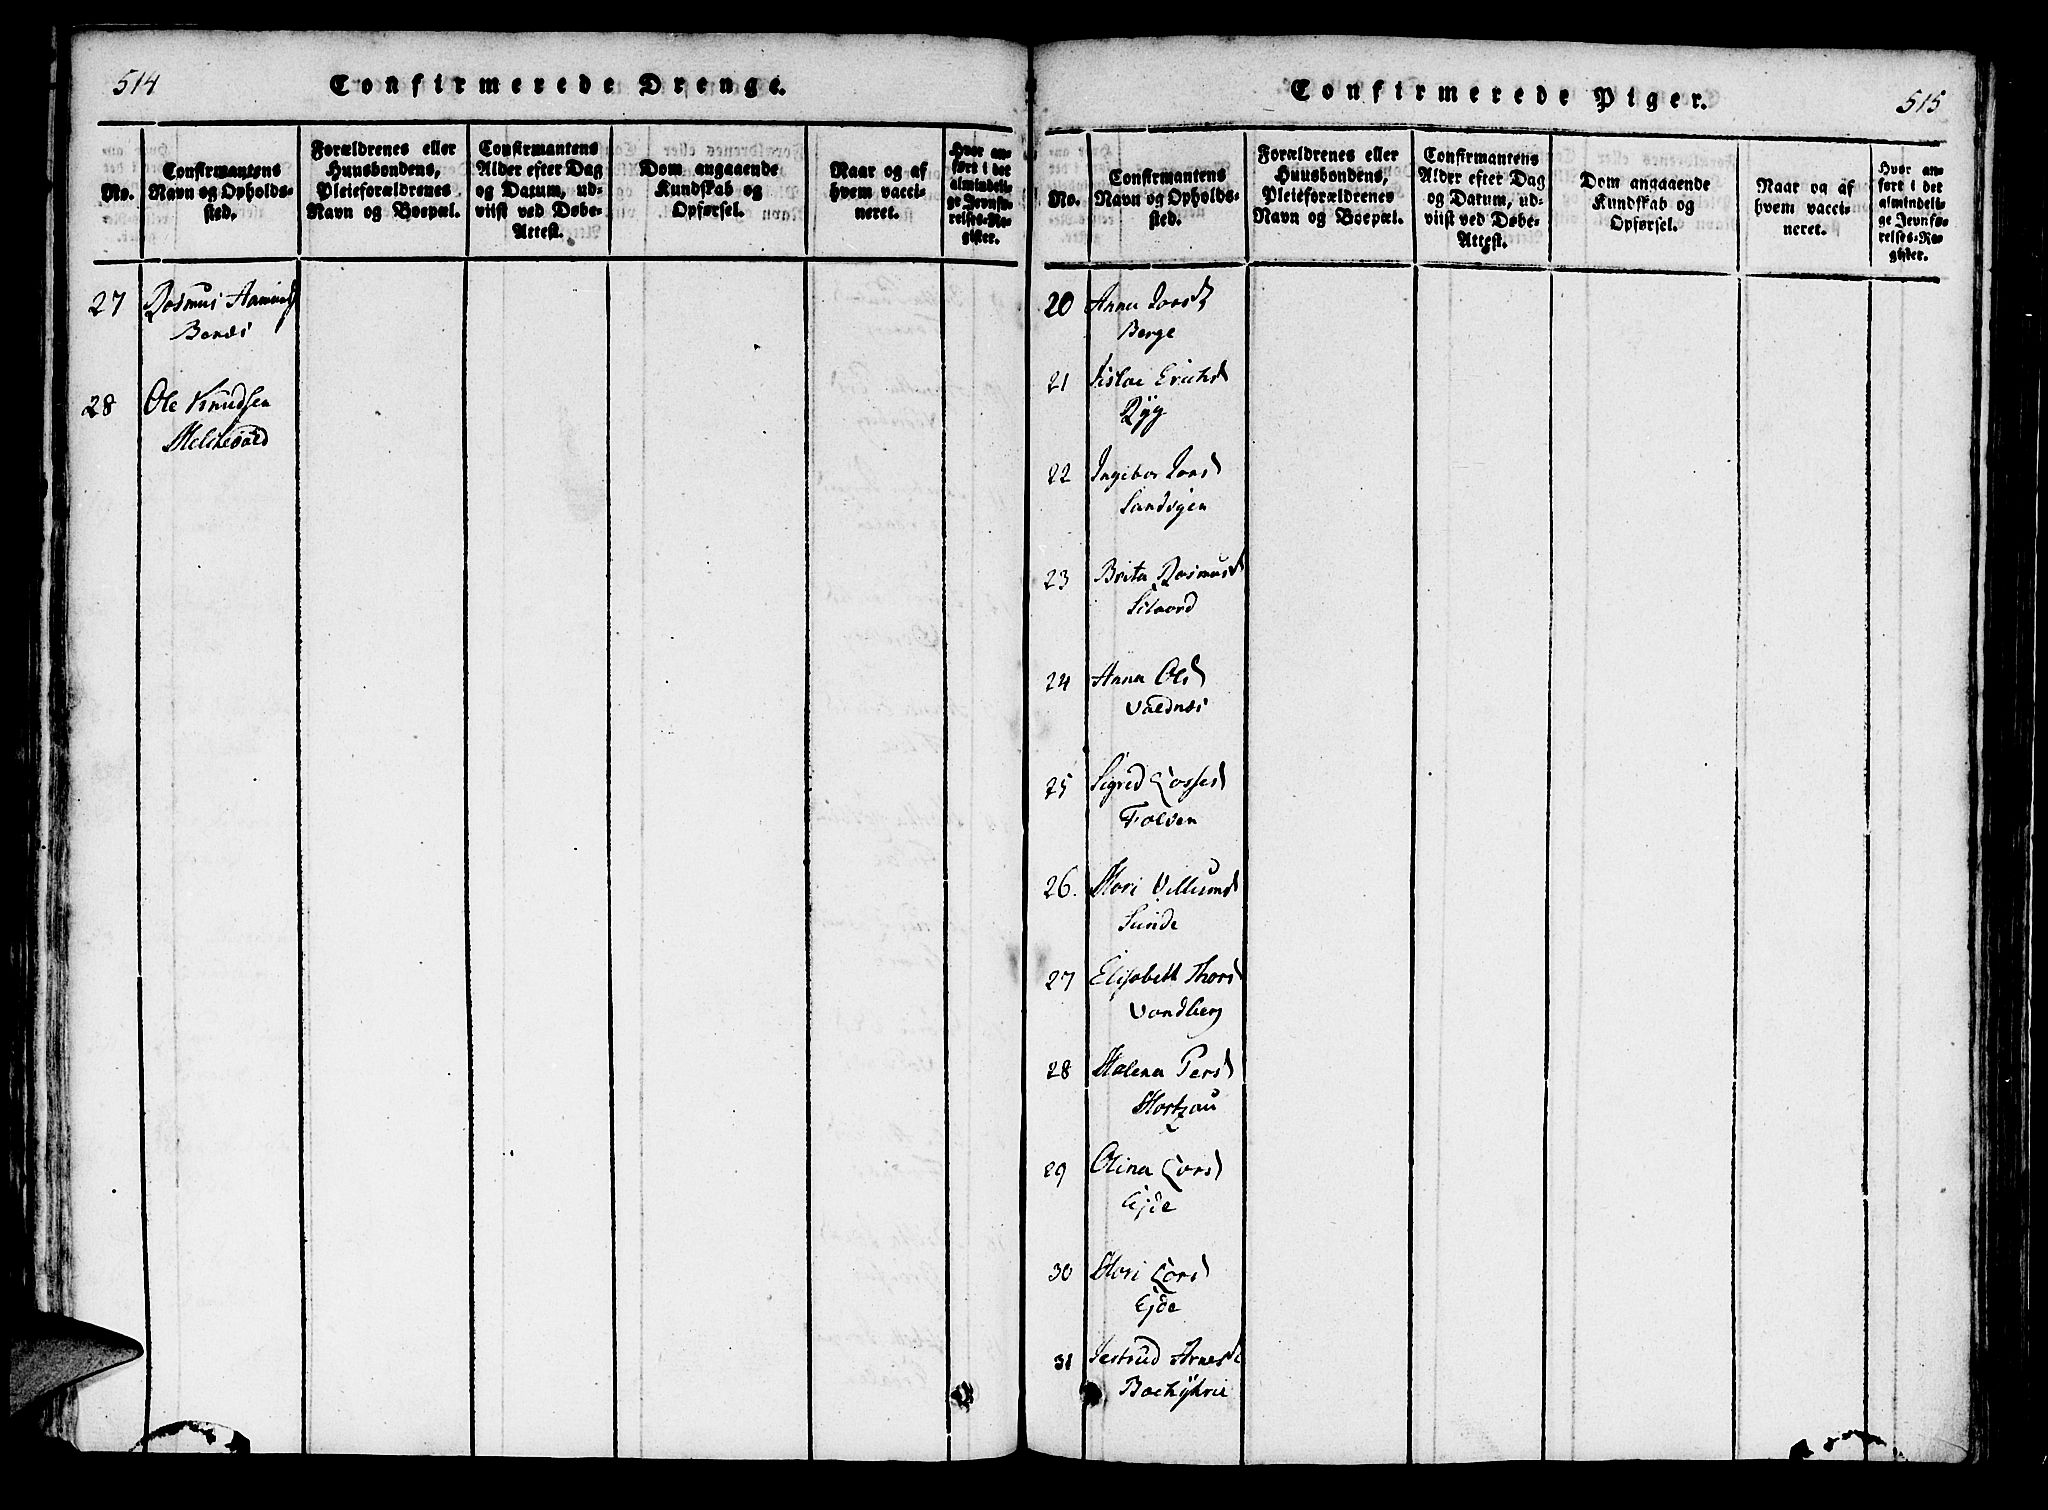 514
Confirmerede Drenge.
No.
Confirmantens
Navn og Opholds-
sted.
Forældrenes eller
Huusbondens,
Pleieforældrenes
Navn og Boepæl.
Confirmantens
Alder efter Dag
og Datum, ud-
viist ved Døbe-
Attest.
Dom angaaende
Kundskab og
Opførsel.
Naar og af
hvem vacci-
neret.
Hvor an-
ført i det
almindeli-
ge Jevnfø-
relses-Re-
gister.
27 Rasmus
Bonæs
28 Ole Knudsen
Melchevold
Confirmerede Piger.
515
No.
Confirmantens
Navn og Opholds-
sted.
Forældrenes eller
Huusbondens,
Pleieforældrenes
Navn og Boepæl.
Confirmantens
Alder efter Dag
og Datum, ud-
viist ved Døbe-
Attest.
Dom angaaende
Kundskab og
Opførsel.
Naar og af
hvem vacci-
neret.
Hvor an-
ført i det
almindeli-
ge Jevnfø-
relses-Re-
gister.
20 Anna Jonsd
Berge
21 Erichsd
Ryg
22 Ingibor Jonsd
Sandvigen
23 Brita Rasmusd
24 Anna Olsd
25 Sigrid Lassesd
Folven
26. Mari Villumsd
Sunde
27 Elisabeth Thorsd
Vandberg
28 Malena Persd
29 Olina Larsd
Ejde
30 Mari Larsd
Ejde
31 Jertrud Arnesd